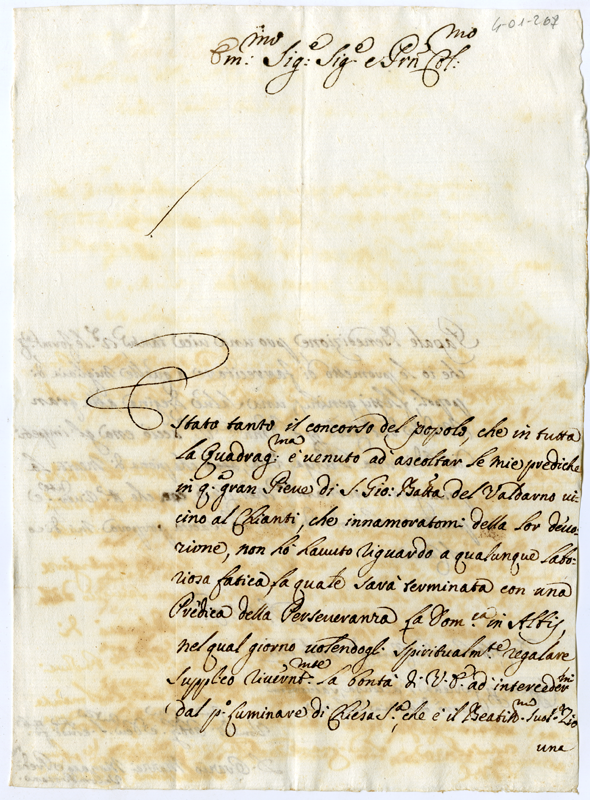 4-01-207
Em:mo Sig:e Sig:e e Prn Col:mo
È stato tanto il concorso del popolo, che in tutta
la Quadrag:ma è venuto ad ascoltar le mie prediche
in q.a gran Pieve di S. Gio: Batta del Valdarno vi-
cino al Chianti, che innamoratom: della lor devo-
zione, non hò havuto riguardo a qualunque labo-
riosa fatica, la quale sarà terminata con una
Predica della Perseveranza la Dom:ca in Albis,
nel qual giorno volendogl: spiritualm:te regalare
supplico riverntmte: la bontà di V. Sa ad interceder
dal p:o luminare di Chiesa S:a, che è il Beatiss:mo suo Zio
una